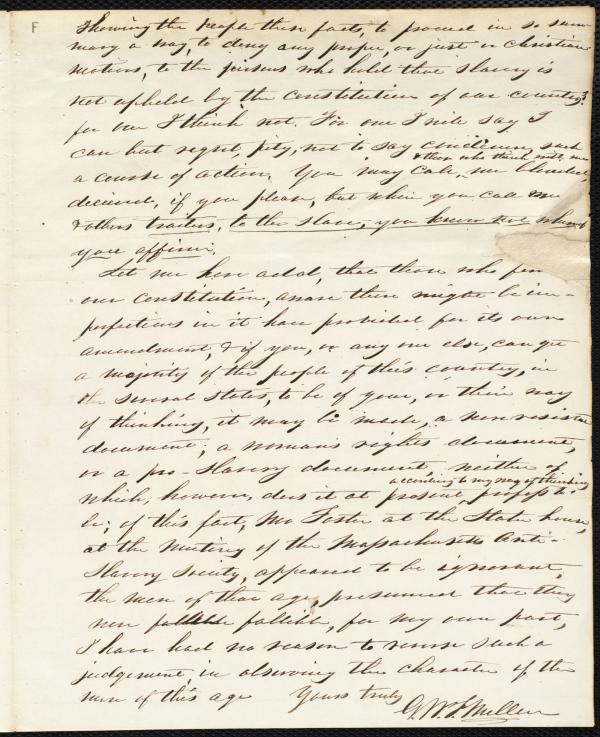 F
showing the people these facts, to proceed in so sum-
mary a way, to deny any proper, or just or christian
motives, to the persons who hold that slavery is
not upheld by the constitution of our country?
for one I think not. For one I will say I
can but regret, pity, not to say condemn such
& those who think with me
a course of action. You may call me blinded,
deceived, if you please, but when you call me
& others traitors, to the slave, you know not whereof
you affirm.
Let me here add, that those who
our constitution, aware there might be im-
perfections in it have provided for its own
amendment, & if you, or any one else, can get
a majority of the people of this country, in
the several states, to be of your, or their way
of thinking, it may be made, a non resistance
document; a woman's rights document,
or a pro-slavery document, neither of
according to my way of thinking
which, however, does it at present, profess to
be; of this fact, Mr Foster at the State house,
at the meeting of the Massachusetts Anti-
Slavery Society, appeared to be ignorant,
the men of that age, presumed that they
were fallible, for my own part,
I have had no reason to reverse such a
judgement, in observing the character of the
men of this age Yours truly
G. W. F. Mellen